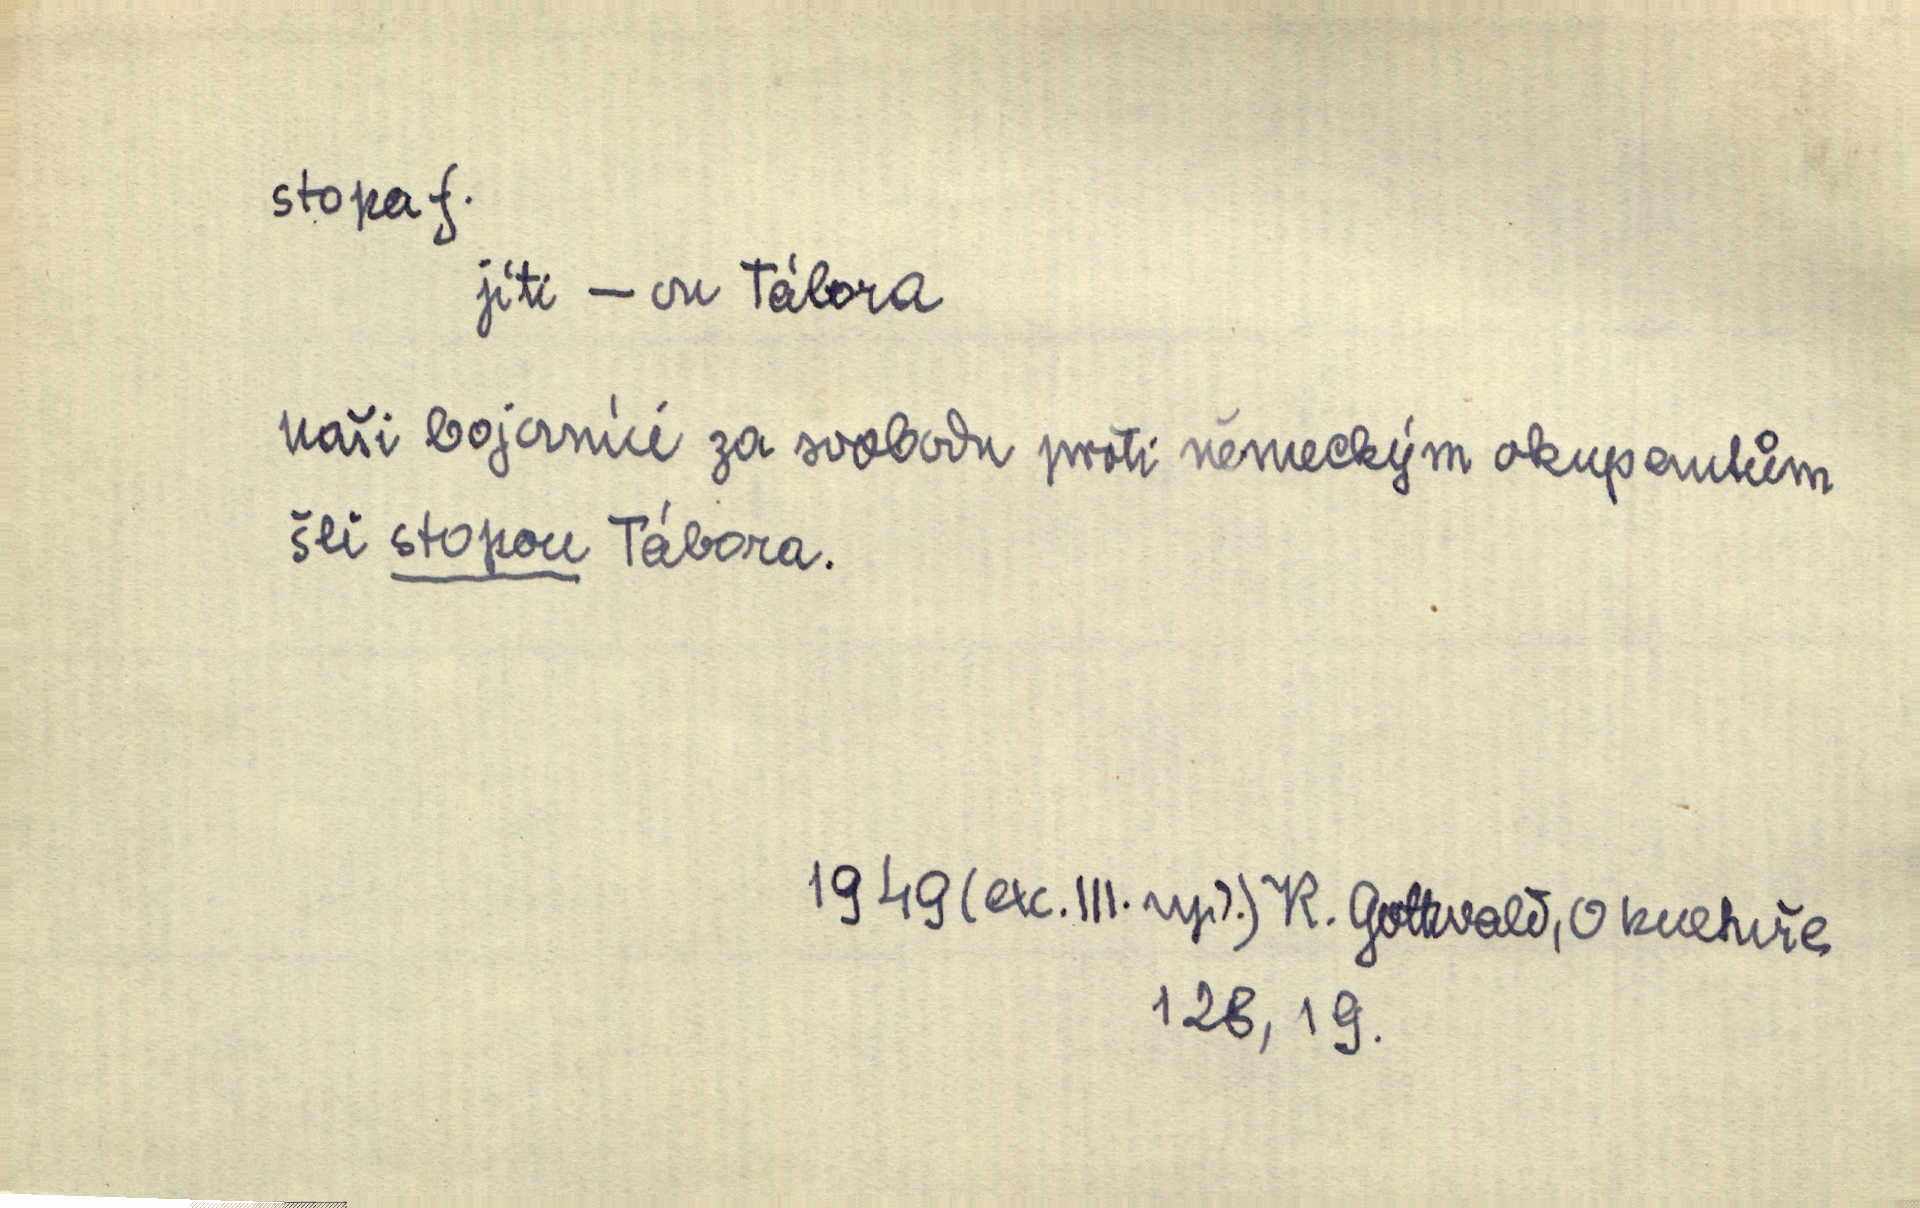 stopa f.
jíti — ou Tábora
naši bojovníci za svobodu proti německým okupantům
šli stopou Tábora.
1949 (exc. III. vyd.) K. Gottwald, O kultuře
128, 19.